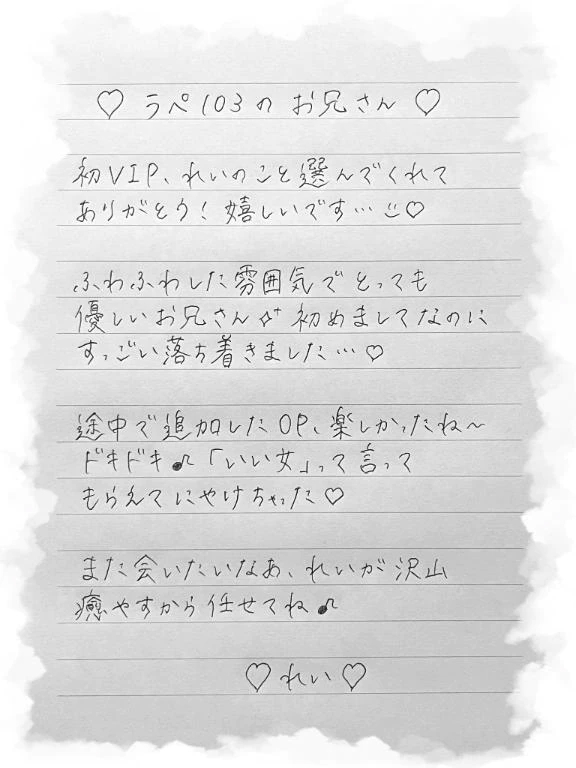 ♡ ラペ103の お兄さん ♡
初VIP、れいのこと選んでくれて
ありがとう！嬉しいです…☺♡
ふわふわした雰囲気でとっても
優しいお兄さん✧⁺ 初めましてなのに
すっごい落ち着きました…♡
途中で追加したOP、楽しかったね〜
ドキドキ♪「いい女」って言って
もらえてにやけちゃった♡
また会いたいなあ、れいが沢山
癒やすから任せてね♪
♡ れい ♡